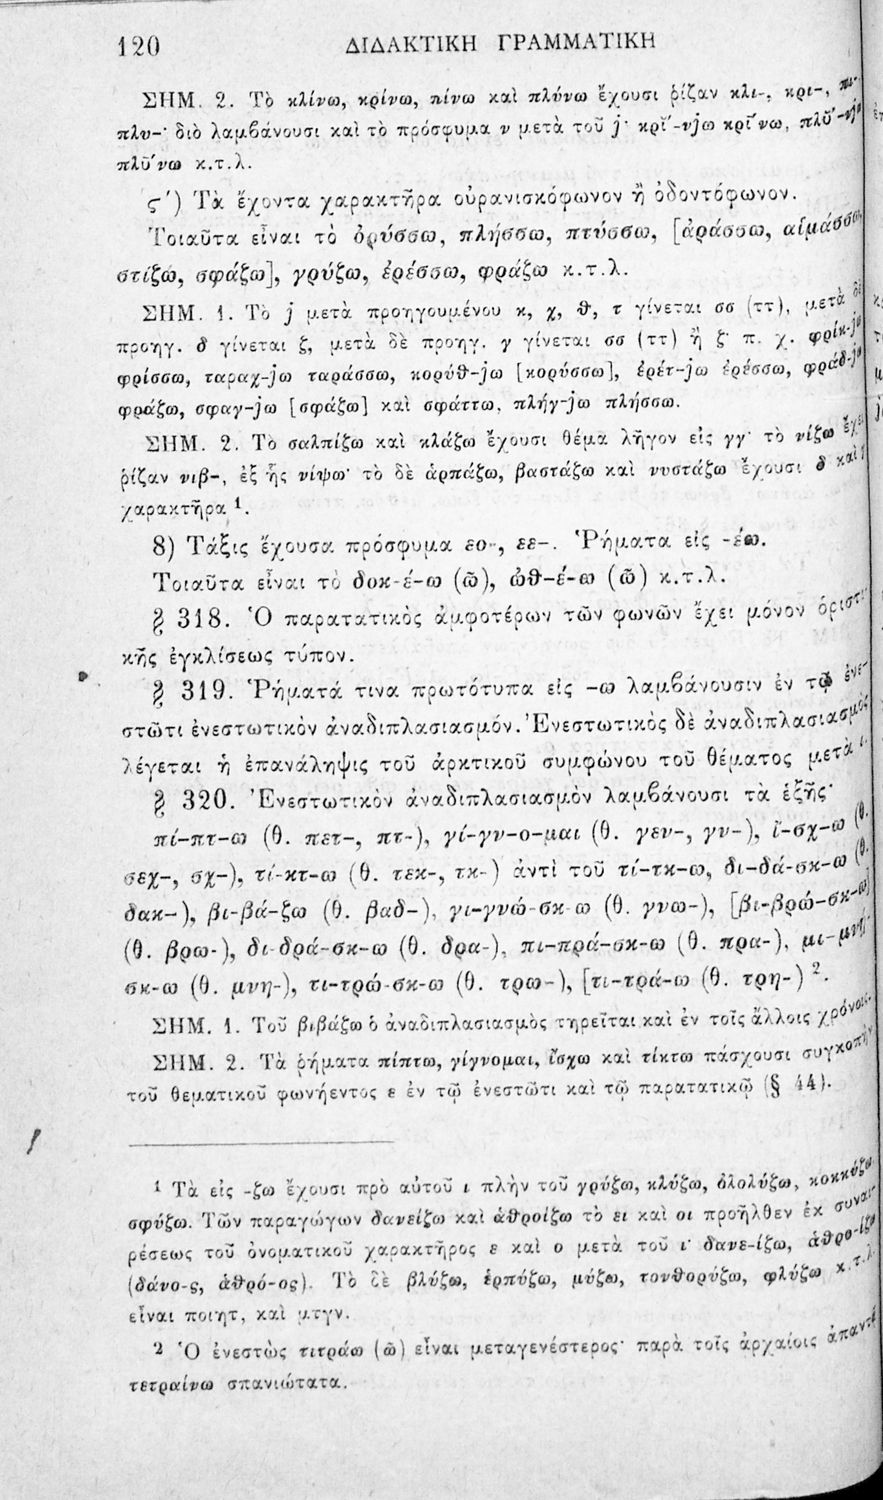 120 ΔΙΔΑΚΤΙΚΗ ΓΡΑΜΜΑΤΙΚΗ
ΣΗΜ. 2. Τὸ κλίνω, κρίνω, πίνω καὶ πλύνω ἔχουσι ῥίζαν κλι-, κρι-, πι-
πλυ-· διὸ λαμβάνουσι καὶ τὸ πρόσφυμα ν μετὰ τοῦ j· κρῐ΄-νjω κρῑ΄νω, πλῠ΄-νjω
πλῡ΄νω κ.τ.λ.
ϛ΄) Τὰ ἔχοντα χαρακτῆρα οὐρανισκόφωνον ἢ ὀδοντόφωνον.
Τοιαῦτα εἶναι τὸ ὀρύσσω, πλήσσω, πτύσσω, [ἀράσσω, αἱμάσσω,
στίζω, σφάζω], γρύζω, ἐρέσσω, φράζω κ.τ.λ.
ΣΗΜ. 1. Τὸ j μετὰ προηγουμένου κ, χ, θ, τ γίνεται σσ (ττ), μετὰ δὲ
προηγ. δ γίνεται ζ, μετὰ δὲ προηγ. γ γίνεται σσ (ττ) ἢ ζ· π. χ. φρίκ-jω
φρίσσω, ταραχ-jω ταράσσω, κορύθ-jω [κορύσσω], ἐρέτ-jω ἐρέσσω, φράδ-jω
φράζω, σφαγ-jω [σφάζω] καὶ σφάττω, πλήγ-jω πλήσσω.
ΣΗΜ. 2. Τὸ σαλπίζω καὶ κλάζω ἔχουσι θέμα λῆγον εἰς γγ· τὸ νίζω ἔχει
ῥίζαν νιβ-, ἐξ ἧς νίψω· τὸ δὲ ἁρπάζω, βαστάζω καὶ νυστάζω ἔχουσι δ καὶ γ
χαρακτῆρα ¹.
8) Τάξις ἔχουσα πρόσφυμα εο-, εε-. Ῥήματα εἰς -έω.
Τοιαῦτα εἶναι τὸ δοκ-έ-ω (ῶ), ὠθ-έ-ω (ῶ) κ.τ.λ.
§ 318. Ὁ παρατατικὸς ἀμφοτέρων τῶν φωνῶν ἔχει μόνον ὁριστι-
κῆς ἐγκλίσεως τύπον.
§ 319. Ῥήματά τινα πρωτότυπα εἰς -ω λαμβάνουσιν ἐν τῷ ἐνε-
στῶτι ἐνεστωτικὸν ἀναδιπλασιασμόν. Ἐνεστωτικὸς δὲ ἀναδιπλασιασμὸς
λέγεται ἡ ἐπανάληψις τοῦ ἀρκτικοῦ συμφώνου τοῦ θέματος μετὰ ι.
§ 320. Ἐνεστωτικὸν ἀναδιπλασιασμὸν λαμβάνουσι τὰ ἑξῆς·
πί-πτ-ω (θ. πετ-, πτ-), γί-γν-ο-μαι (θ. γεν-, γν-), ἴ-σχ-ω (θ.
σεχ-, σχ-), τί-κτ-ω (θ. τεκ-, τκ-) ἀντὶ τοῦ τί-τκ-ω, δι-δά-σκ-ω (θ.
δακ-), βι-βά-ζω (θ. βαδ-), γι-γνώ-σκ-ω (θ. γνω-), [βι-βρώ-σκ-ω]
(θ. βρω-), δι-δρά-σκ-ω (θ. δρα-), πι-πρά-σκ-ω (θ. πρα-), μι-μνή-
σκ-ω (θ. μνη-), τι-τρώ-σκ-ω (θ. τρω-), [τι-τρά-ω (θ. τρη-) ².
ΣΗΜ. 1. Τοῦ βιβάζω ὁ ἀναδιπλασιασμὸς τηρεῖται καὶ ἐν τοῖς ἄλλοις χρόνοις.
ΣΗΜ. 2. Τὰ ῥήματα πίπτω, γίγνομαι, ἴσχω καὶ τίκτω πάσχουσι συγκοπὴν
τοῦ θεματικοῦ φωνήεντος ε ἐν τῷ ἐνεστῶτι καὶ τῷ παρατατικῷ (§ 44).
¹ Τὰ εἰς -ζω ἔχουσι πρὸ αὐτοῦ ι πλὴν τοῦ γρύζω, κλύζω, ὀλολύζω, κοκκύζω,
σφύζω. Τῶν παραγώγων δανείζω καὶ ἀθροίζω τὸ ει καὶ οι προῆλθεν ἐκ συναι-
ρέσεως τοῦ ὀνοματικοῦ χαρακτῆρος ε καὶ ο μετὰ τοῦ ι· δανε-ίζω, ἀθρο-ίζω
(δάνο-ς, ἀθρό-ος). Τὸ δὲ βλύζω, ἑρπύζω, μύζω, τονθορύζω, φλύζω κ.τ.λ.
εἶναι ποιητ. καὶ μτγν.
² Ὁ ἐνεστὼς τιτράω (ῶ) εἶναι μεταγενέστερος· παρὰ τοῖς ἀρχαίοις ἀπαντᾷ
τετραίνω σπανιώτατα.